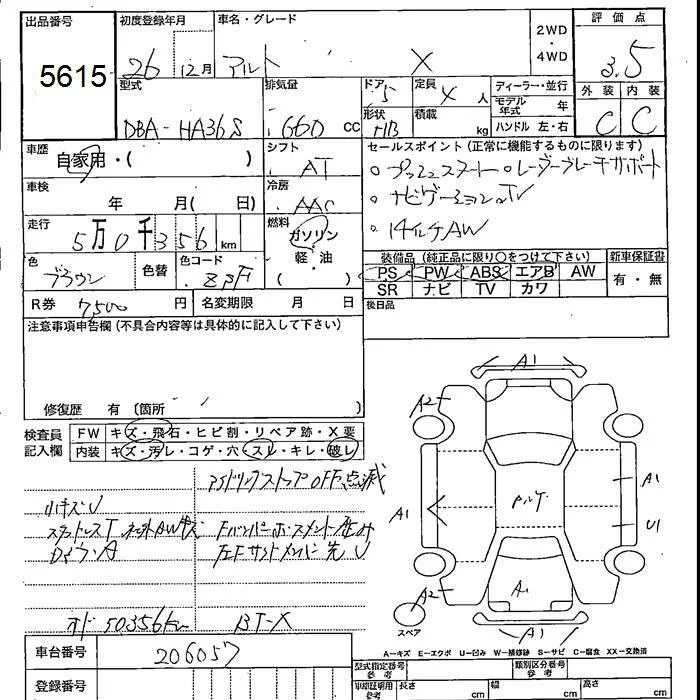 出品番号
5615
初度登録年月
26 12月
車名・グレード
アルト X
2WD
・
4WD
評価点
3.5
型式
DBA-HA36S
排気量
660 cc
ドア
5
形状
HB
定員
人
積載
kg
ディーラー・並行
モデル年式 年
ハンドル 左・右
外装 内装
C C
車歴
自家用・( )
シフト
AT
セールスポイント (正常に機能するものに限ります)
○プッシュスタート ○レーダーブレーキサポート
○ナビゲーション TV
○14インチAW
車検
年 月( 日)
冷房
AAC
走行
5万0千356km
燃料
ガソリン
軽・油
( )
色
ブラウン
色替
色コード
ZPF
装備品 (純正品に限り○をつけて下さい)
PS PW ABS エアB AW
SR ナビ TV カワ
新車保証書
有・無
R券 7,500 円
名変期限 月 日
後日品
注意事項申告欄 (不具合内容等は具体的に記入して下さい)
修復歴 有 〔箇所 〕
検査員記入欄
FW キズ・飛石・ヒビ割・リペア跡・X要
内装 キズ・汚レ・コゲ・穴・スレ・キレ・破レ
アイドリングストップOFF点滅
小キズU
スタットレスT
オド 50356km
A1
A2
A1
A1
U1
A2
A1
スペア
A1
A=キズ E=エクボ U=凹み W=補修跡 S=サビ C=腐食 XX=交換済
車台番号
206057
登録番号
型式指定番号 参考
類別区分番号 参考
車庫証明用 参考
長さ cm
幅 cm
高さ cm